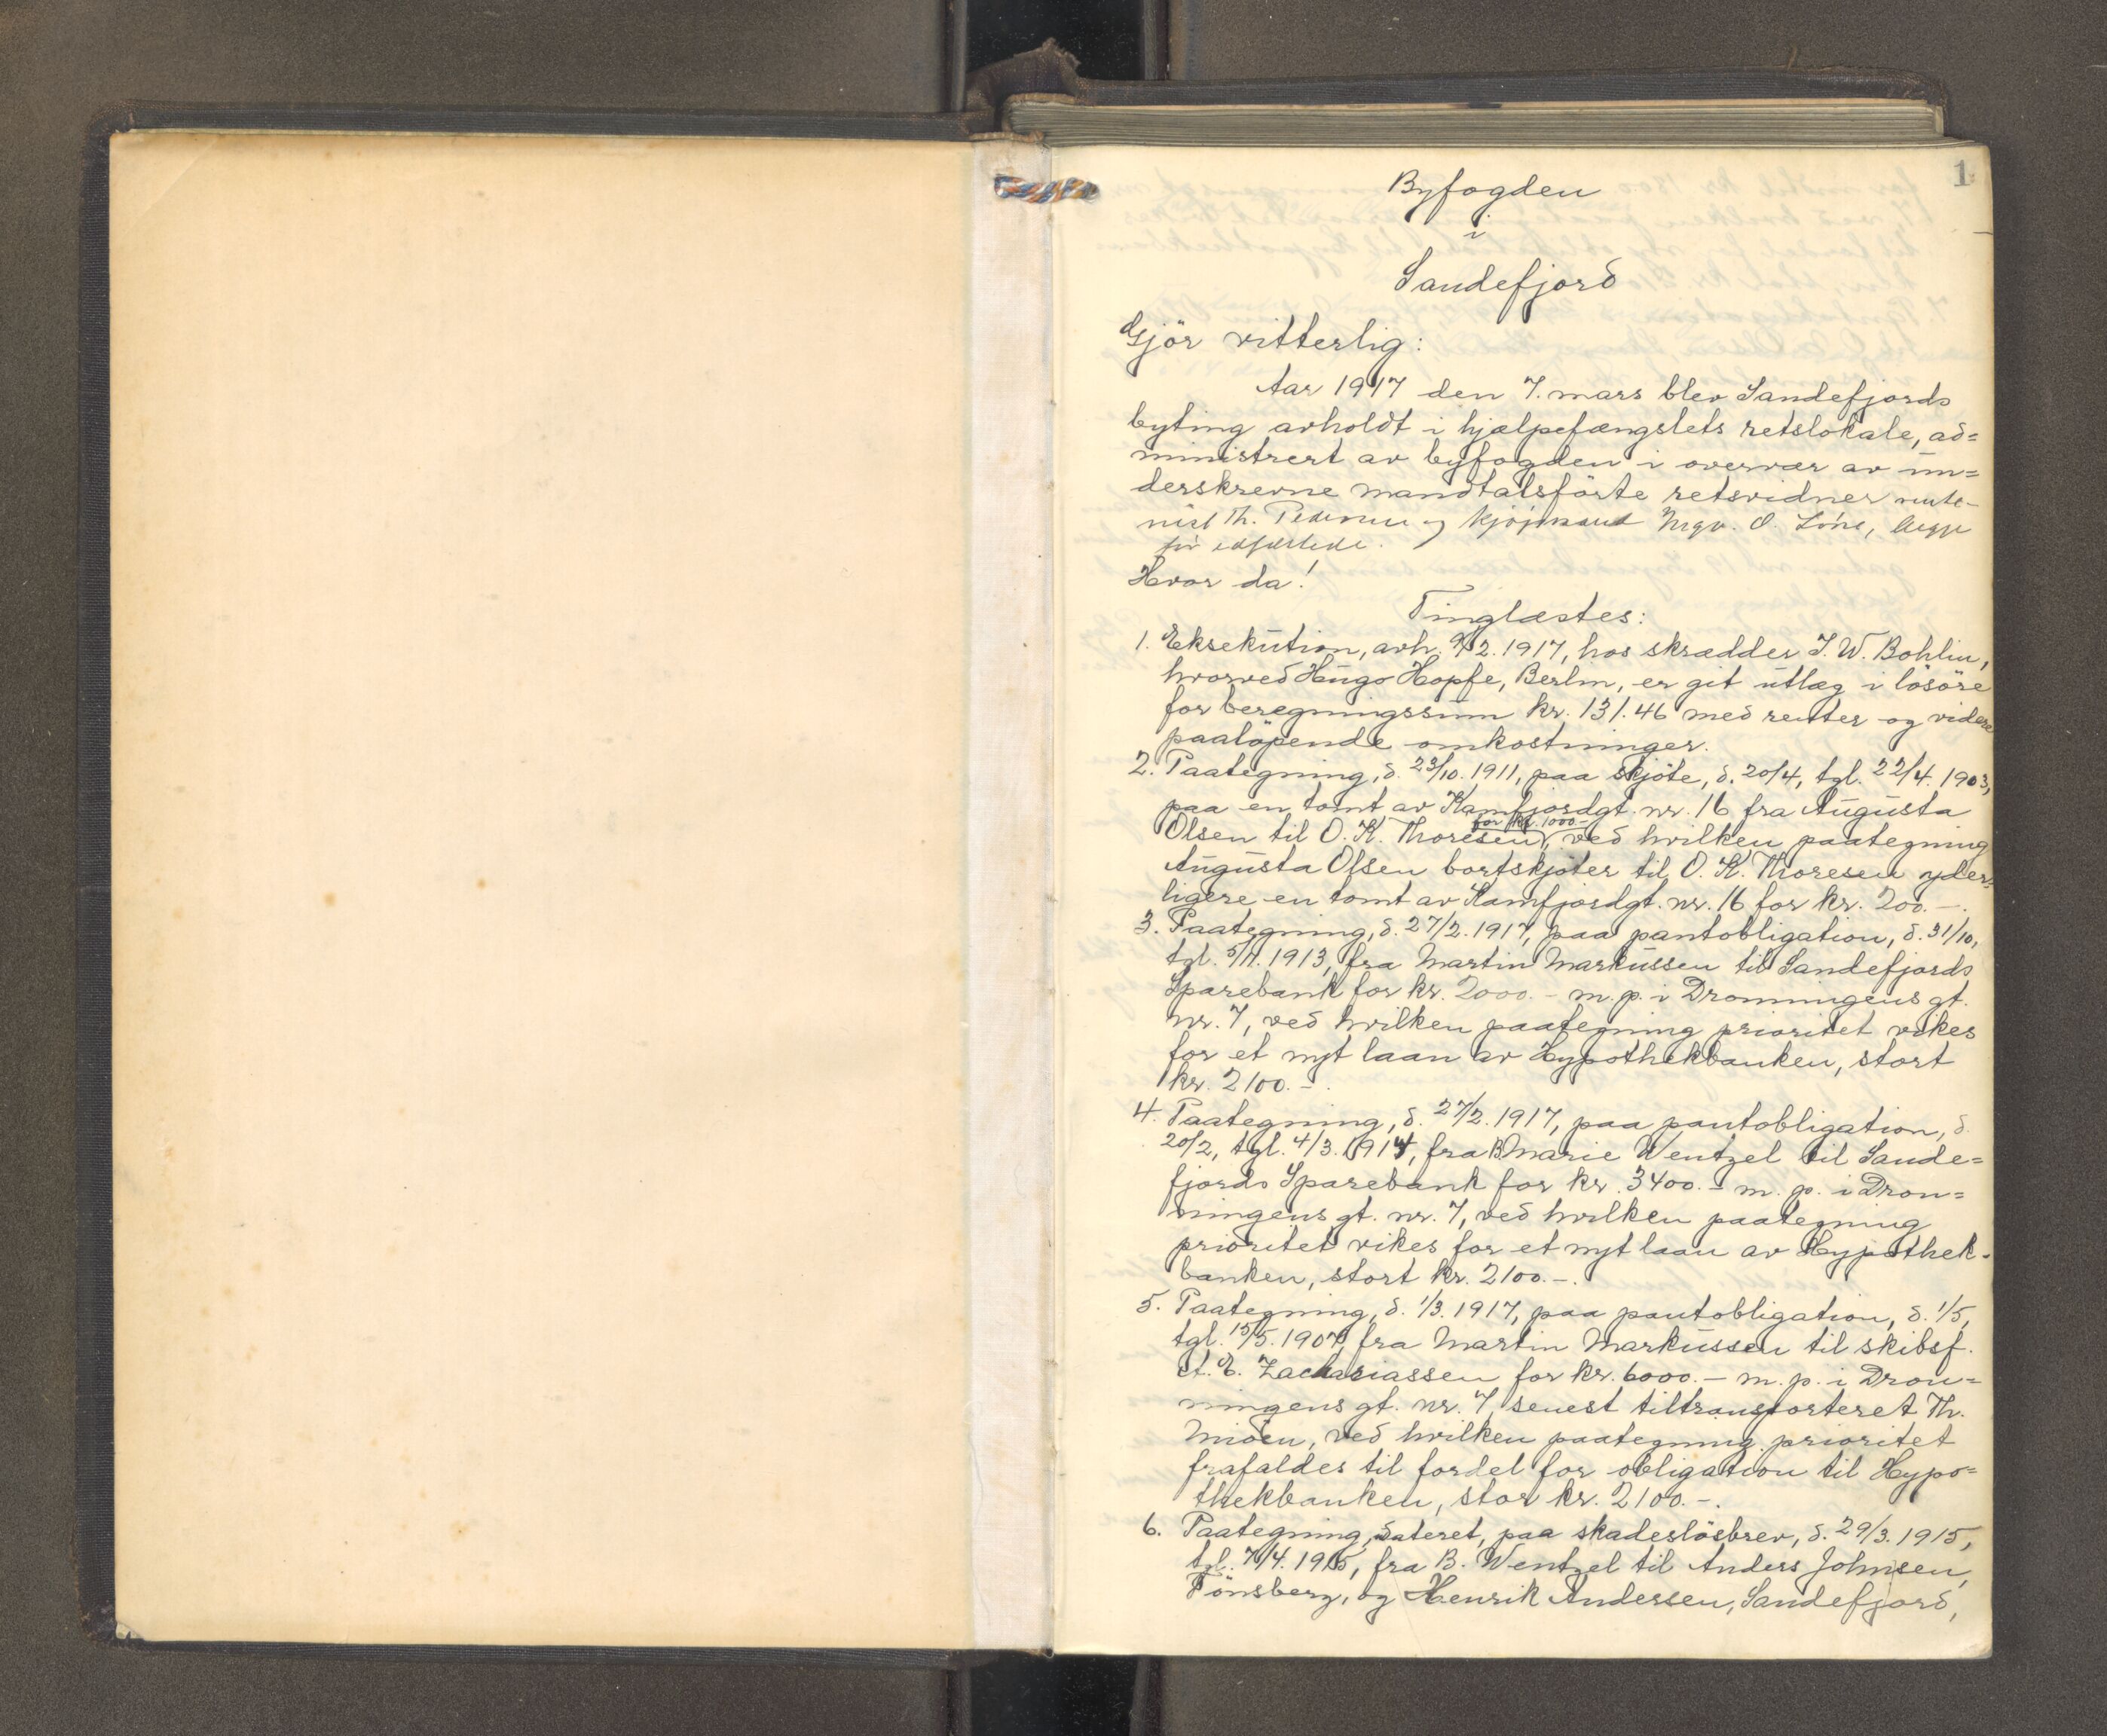 1
Byfogden
i
Sandefjord
Gjör vitterlig:
Aar 1917 den 7. mars blev Sandefjords
byting avholdt i hjælpefængslets retslokale, ad=
ministrert av byfogden i overvær av un=
derskrevne mandtalsförte retsvidner
Th. Pedersen og kjöpmand Ingv. O. begge
för edfæstede.
Hvor da!
Tinglæstes:
1. Eksekution, avh. 9/2. 1917, hos skrædder J. W. Bohlin,
hvorved Hugo Hopfe, Berlin, er git utlæg i lösöre
for beregningssum kr. 131.46 med renter og videre
paalöpende omkostninger.
2. Paategning, d. 23/10. 1911, paa skjöte, d. 20/4, tgl. 22/4. 1903,
paa en tomt av Kamfjordgt. nr. 16 fra Augusta
for kr. 1000.-
Olsen til O. K. Thoresen, ved hvilken paategning
Augusta Olsen bortskjöter til O. K. Thoresen yder=
ligere en tomt av Kamfjordgt. nr. 16 for kr. 200.-.
3. Paategning, d. 27/2. 1917, paa pantobligation, d. 31/10,
tgl. 5/11. 1913, fra Martin Markussen til Sandefjords
Sparebank for kr. 2000.- m. p. i Dronningens gt.
nr. 7, ved hvilken paategning prioritet vikes
for et nyt laan av Hypothekbanken, stort
kr. 2100.-.
4. Paategning, d. 27/2. 1917, paa pantobligation, d.
20/2, tgl. 4/3. 1914, fra B. Marie Wentzel til Sande=
fjords Sparebank for kr. 3400.- m. p. i Dron=
ningens gt. nr. 7, ved hvilken paategning
prioritet vikes for et nyt laan av Hypothek-
banken, stort kr. 2100.-.
5. Paategning, d. 1/3. 1917, paa pantobligation, d. 1/5,
tgl. 15/5. 1907, fra Martin Markussen til skibsf.
A. E. Zachariassen for kr. 6000.- m. p. i Dron=
ningens gt. nr. 7, senest tiltransporteret Th.
Moen, ved hvilken paategning prioritet
frafaldes til fordel for obligation til Hypo=
thekbanken, stor kr. 2100.-.
6. Paategning, dateret, paa skadeslösbrev, d. 29/3. 1915,
tgl. 7/4. 1915, fra B. Wentzel til Anders Johnsen,
Tönsberg, og Henrik Andersen, Sandefjord,